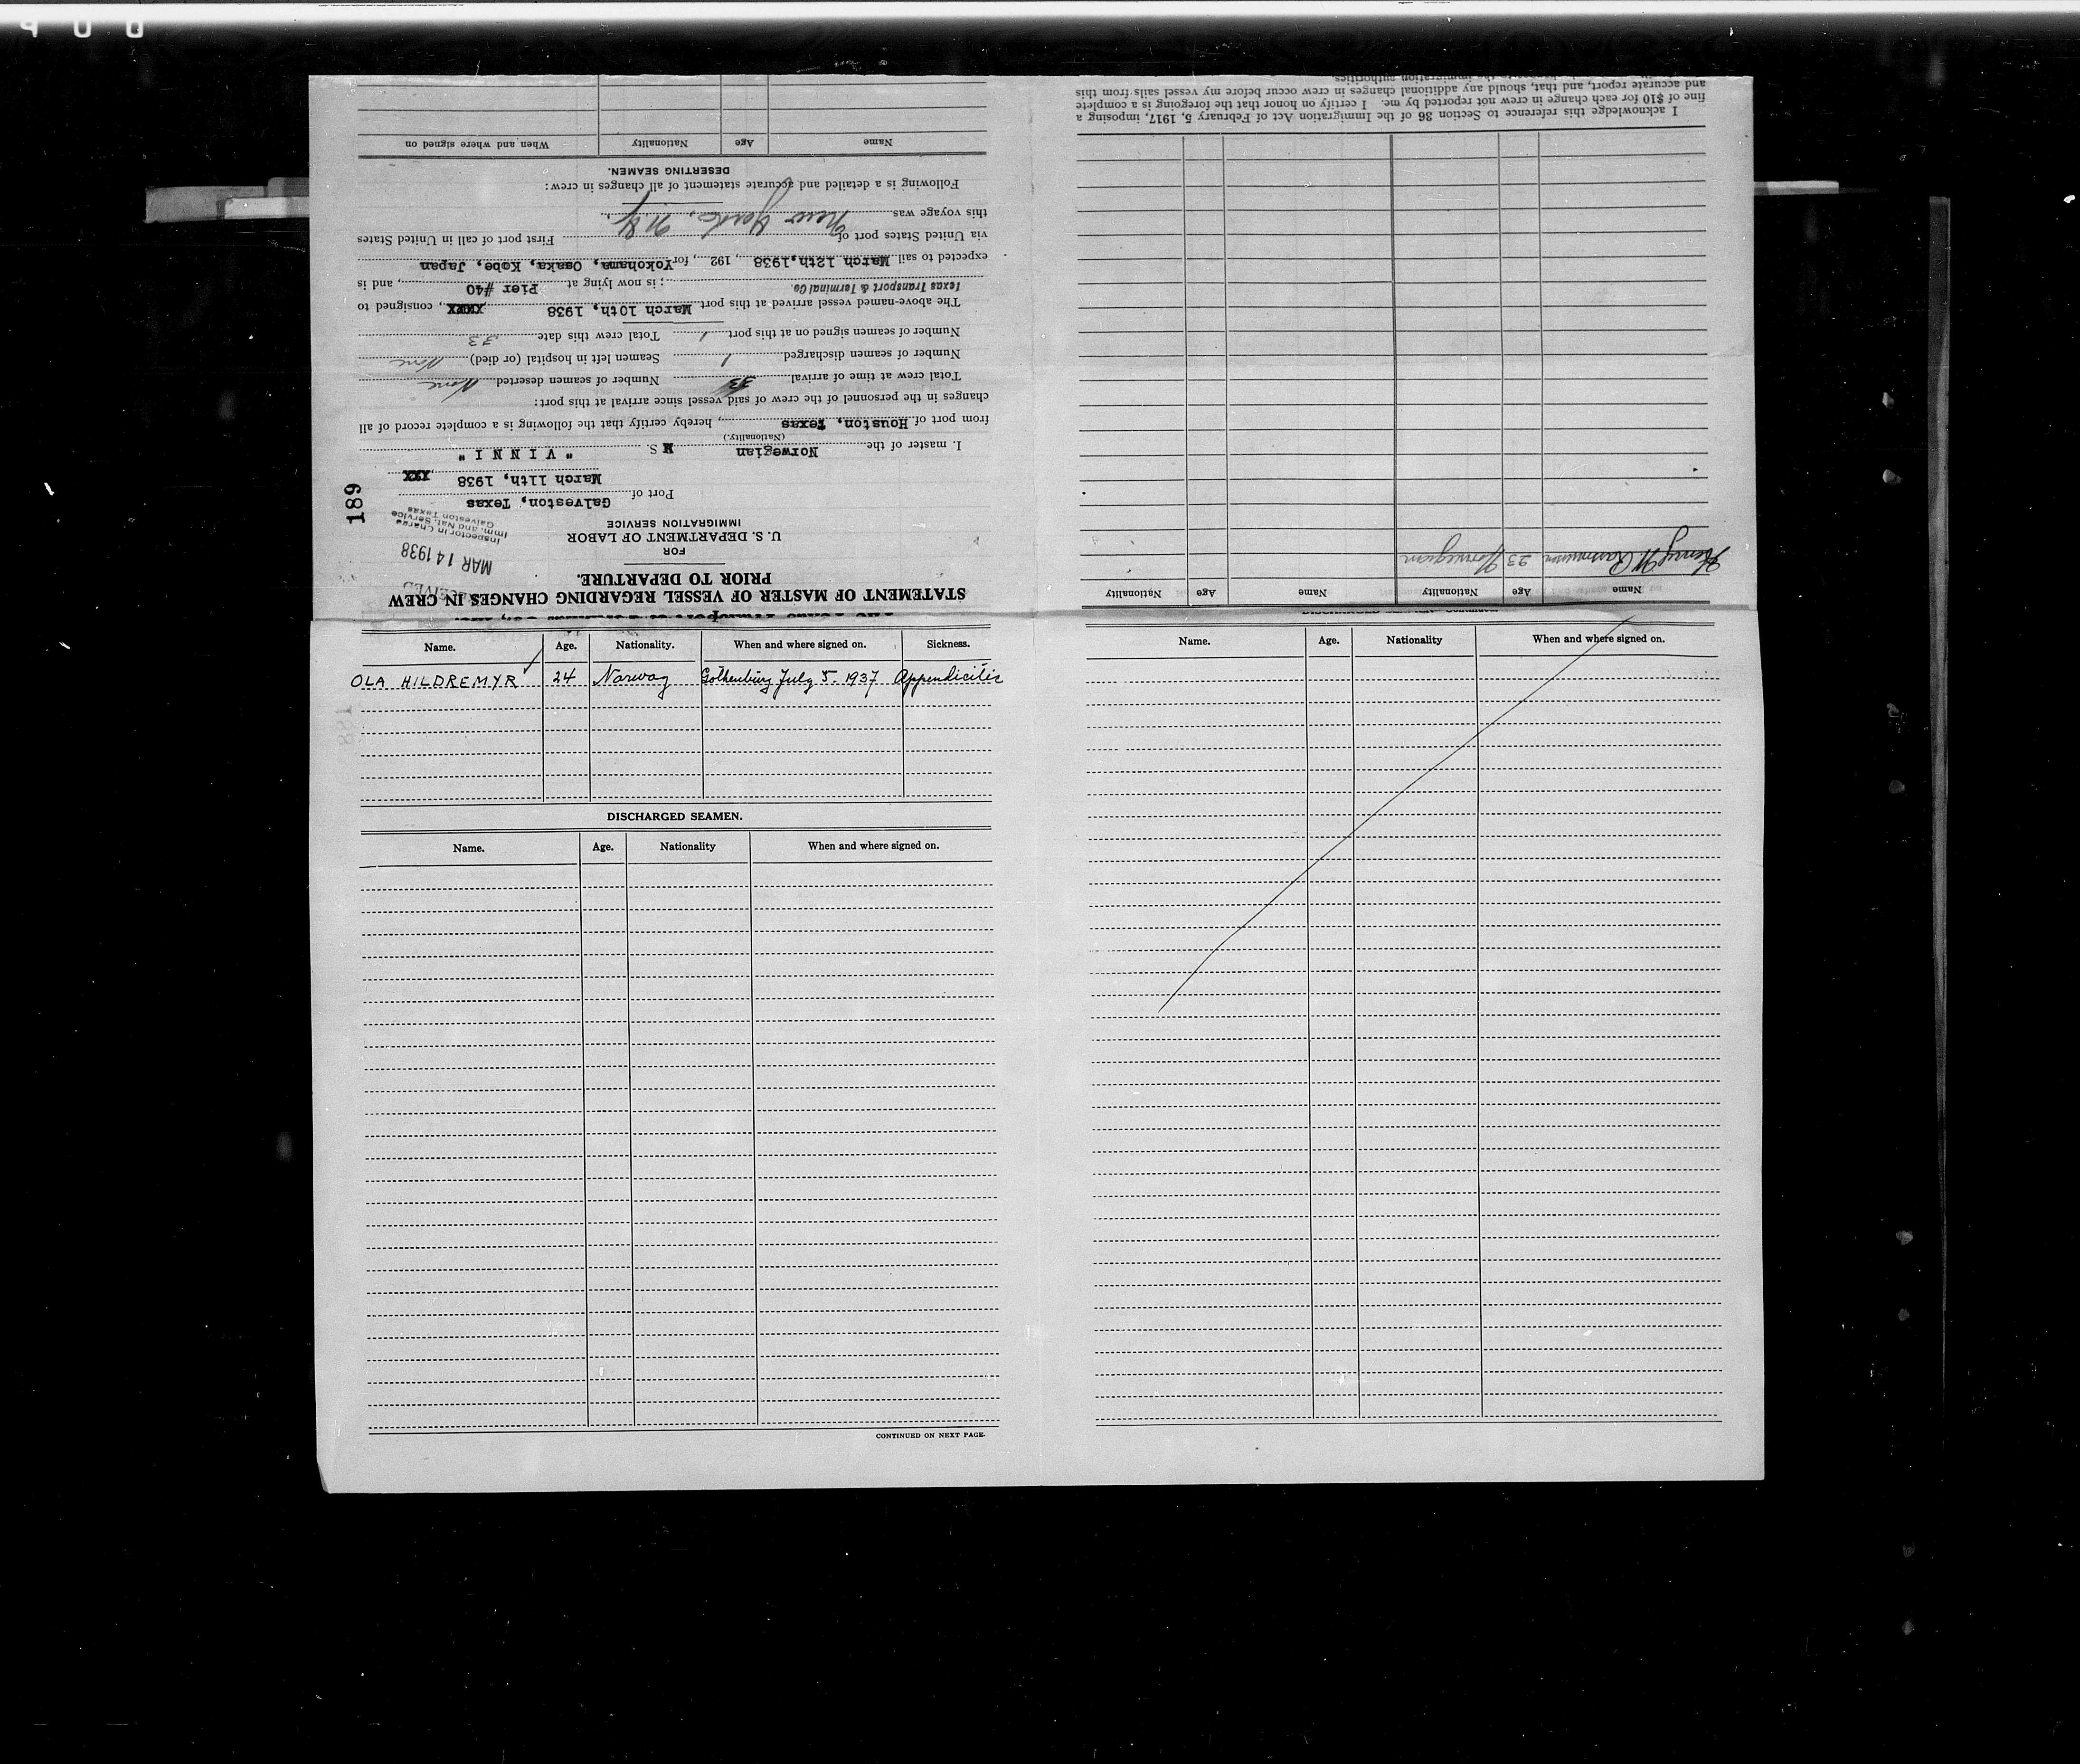 STATEMENT OF MASTER OF VESSEL REGARDING CHANGES IN CREW
PRIOR TO DEPARTURE.
FOR
U. S. DEPARTMENT OF LABOR
IMMIGRATION SERVICE
MAR 14 1938
Inspector in Charge
Imm. and Nat. Service
Galveston Texas
189
Port of Galveston, Texas
March 11th, 1938 XXX
I, master of the Norwegian M S. " V I N N I "
(Nationality.)
from port of Houston, Texas, hereby certify that the following is a complete record of all
changes in the personnel of the crew of said vessel since arrival at this port:
Total crew at time of arrival 33 Number of seamen deserted None
Number of seamen discharged 1 Seamen left in hospital (or died) None
Number of seamen signed on at this port 1 Total crew this date 33
The above-named vessel arrived at this port March 10th, 1938 XXXXX, consigned to
Texas Transport & Terminal Co ; is now lying at Pier #40, and is
expected to sail March 12th, 1938, 192 , for Yokohama, Osaka, Kobe, Japan
via United States port of First port of call in United States
this voyage was New York, N.Y.
Following is a detailed and accurate statement of all changes in crew:
DESERTING SEAMEN.
Name Age Nationality When and where signed on
Name Age Nationality Name Age Nationality
Henry W Rasmussen 23 Norwegian
I acknowledge this reference to Section 36 of the Immigration Act of February 5, 1917, imposing a
fine of $10 for each change in crew not reported by me. I certify on honor that the foregoing is a complete
and accurate report, and that, should any additional changes in crew occur before my vessel sails from this
immigration authorities.
Name. Age. Nationality. When and where signed on. Sickness.
OLA HILDREMYR 24 Norway Gothenburg July 5. 1937 Appendicitis
DISCHARGED SEAMEN.
Name. Age. Nationality When and where signed on.
CONTINUED ON NEXT PAGE.
Name. Age. Nationality When and where signed on.